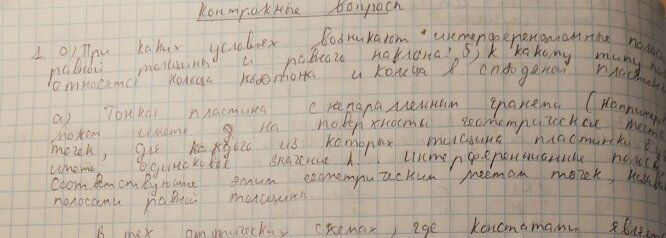 Контрольные вопросы
1. а) При каких условиях возникают интерференционные полосы
равной толщины и равного наклона? б) К какому типу
относятся кольца Ньютона и кольца в слюдяной пластинке
а) Тонкая пластина с непараллельными гранями (например
может иметь на поверхности геометрические места
точек, для каждого из которых толщина пластинки б
иметь одинаковое значение h. Интерференционные полосы
соответствующие этим геометрическим местам точек, назыв
полосами равной толщины.
В тех оптических схемах, где константами являе